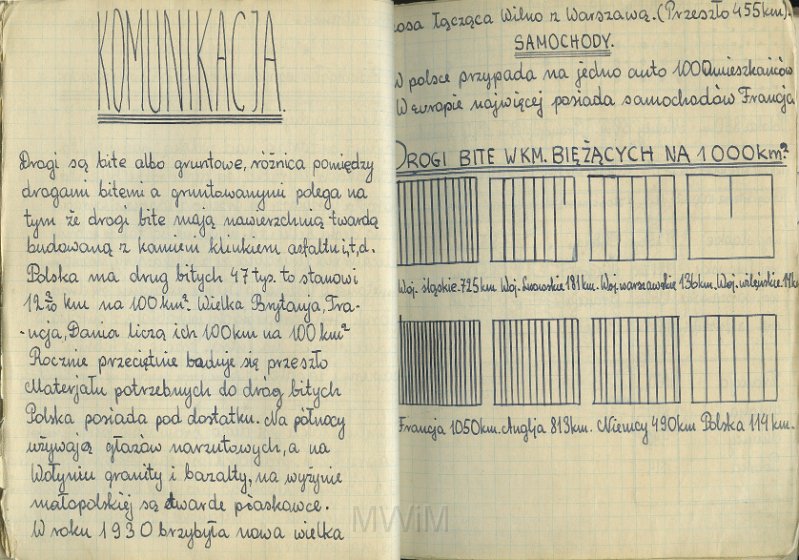 KOMUNIKACJA.
Drogi są bite albo gruntowe, różnica pomiędzy
drogami bitemi a gruntowanymi polega na
tym że drogi bite mają nawierzchnią twardą
budowaną z kamieni klinkieru asfaltu i,t,d.
Polska ma drug bitych 47 tys. to stanowi
12 km na 100 km². Wielka Brytanja, Fra-
-ncja, Dania liczą ich 100 km na 100 km²
Rocznie przeciętnie buduje się przeszło
Materjału potrzebnych do dróg bitych
Polska posiada pod dostatku. Na północy
używają głazów narzutowych, a na
Wołyniu granity i bazalty, na wyżynie
małopolskiej są twarde piaskowce.
W roku 1930 brzybyła nowa wielka
osa łącząca Wilno z Warszawą. (Przeszło 455 km).
SAMOCHODY.
W polsce przypada na jedno auto 1000 mieszkańców
W europie najwięcej posiada samochodów Francja
DROGI BITE W KM. BIĘŻĄCYCH NA 1000 km²
Woj. śląskie. 725 km Woj. Lwowskie 181 km. Woj. warszawskie 136 km. Woj. wileńskie.
Francja 1050 km. Anglja 813 km. Niemcy 490 km Polska 114 km.
MWiM